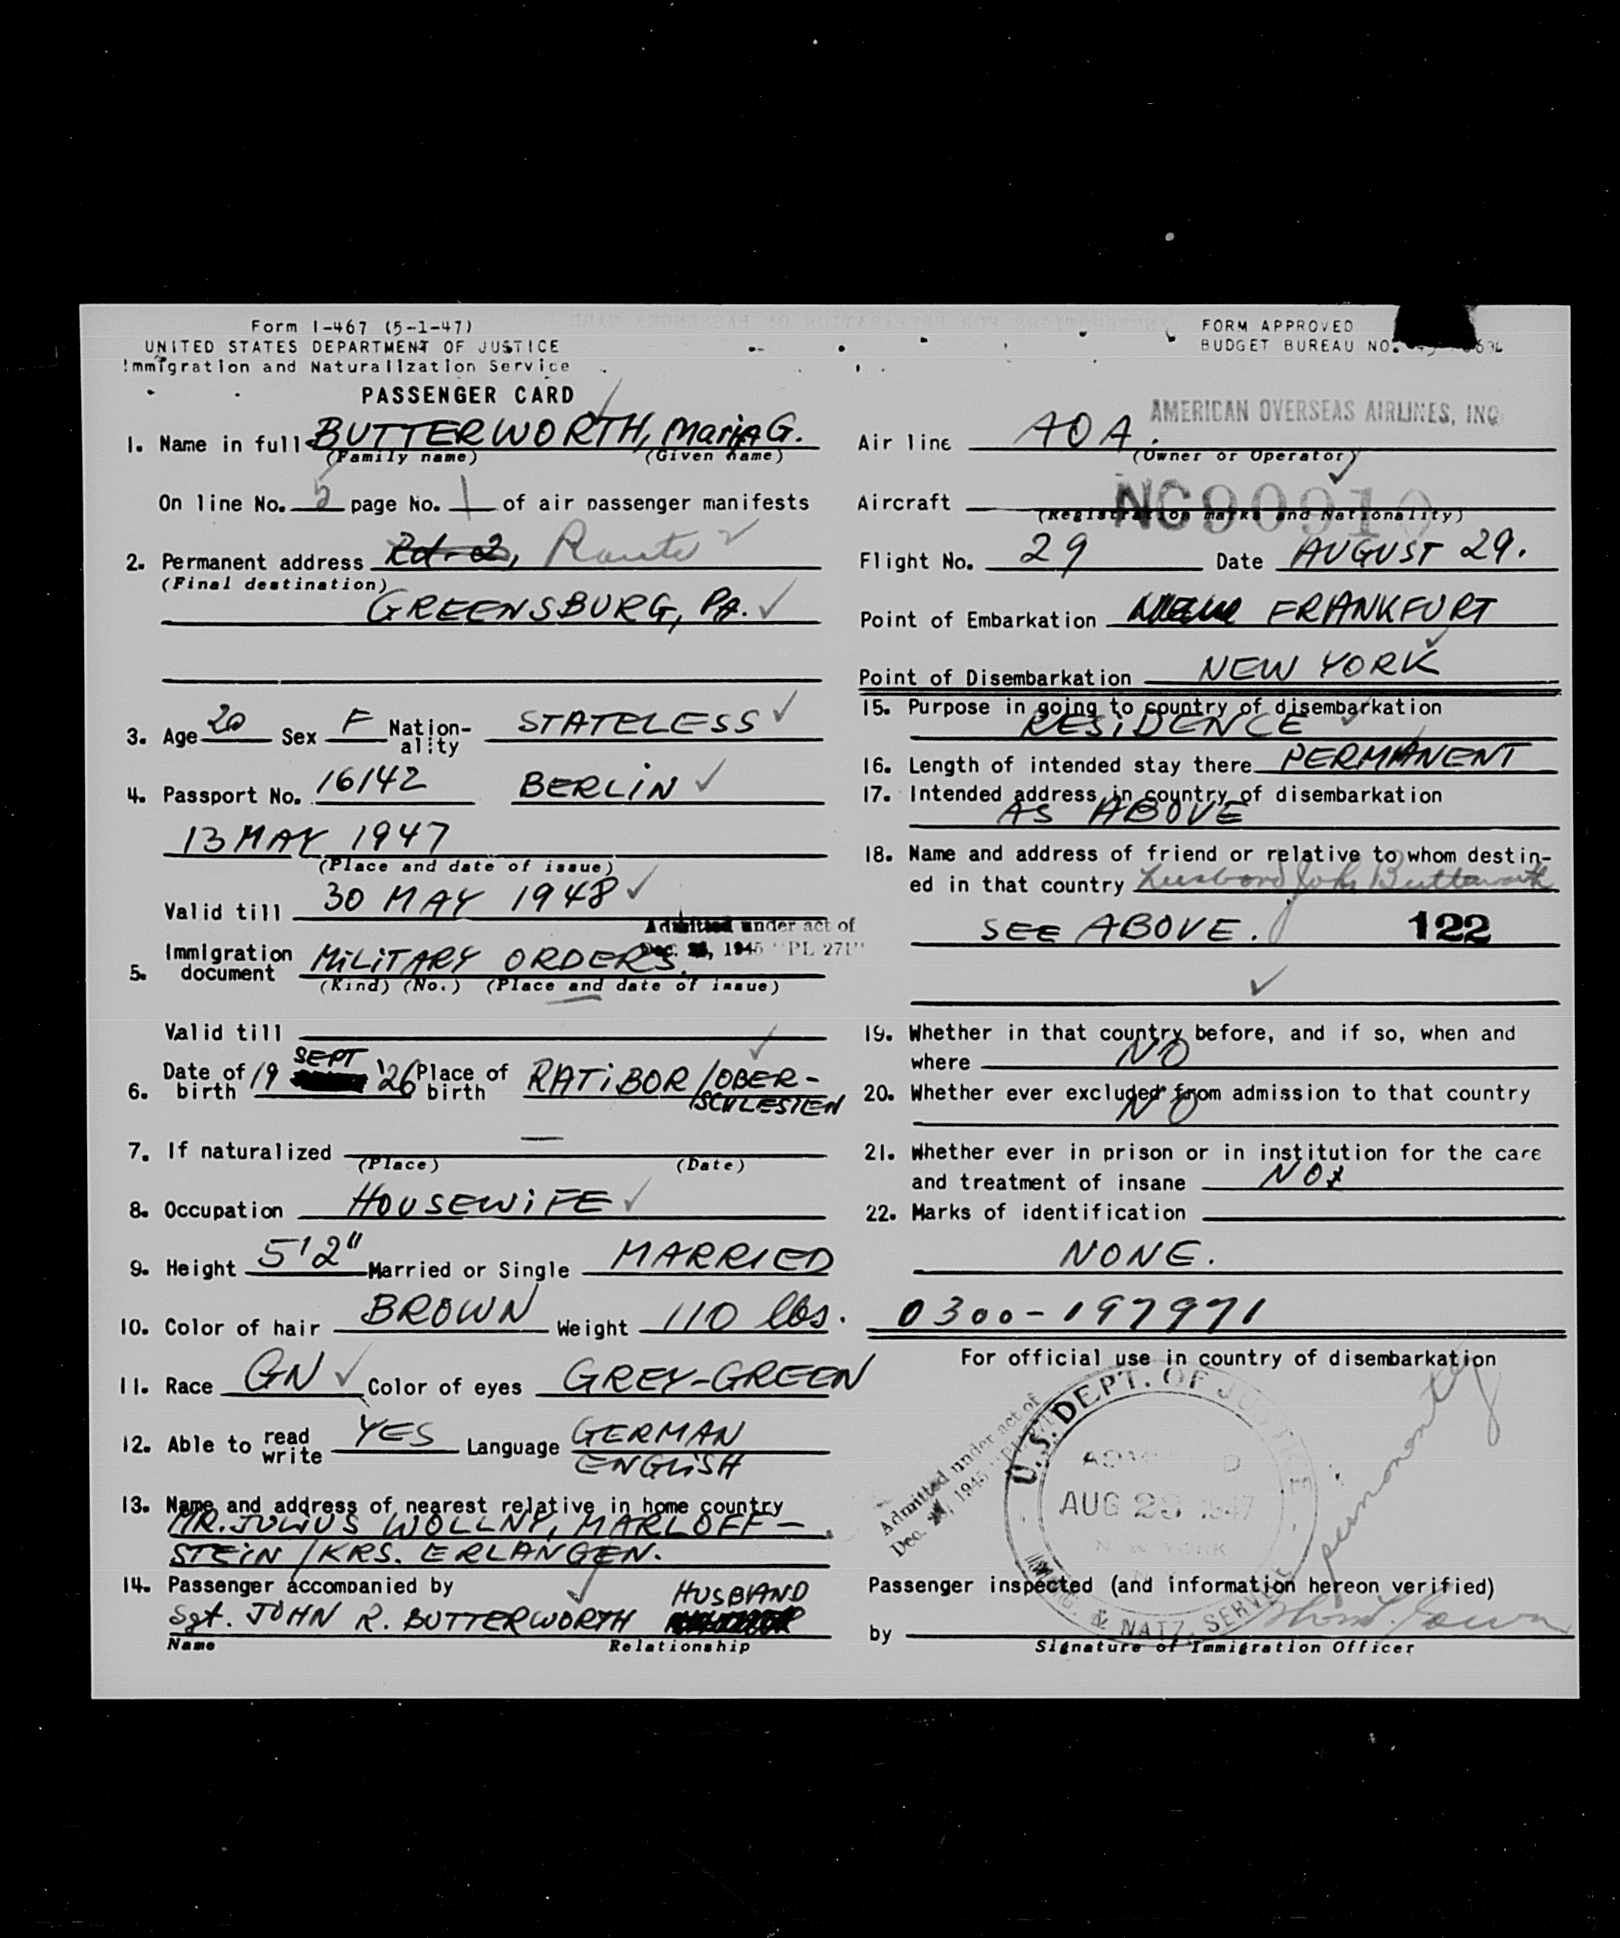 Form I-467 (5-1-47)
UNITED STATES DEPARTMENT OF JUSTICE
Immigration and Naturalization Service
PASSENGER CARD
1. Name in full BUTTERWORTH, Maria G.
(Family name) (Given name)
On line No. 5 page No. 1 of air passenger manifests
2. Permanent address Rd. 2, Route 2
(Final destination)
GREENSBURG, PA.
3. Age 20 Sex F Nation-ality STATELESS
4. Passport No. 16142 BERLIN
13 MAY 1947
(Place and date of issue)
Valid till 30 MAY 1948
Admitted under act of
Dec. 1945 "PL 271"
5. Immigration document MILITARY ORDERS.
(Kind) (No.) (Place and date of issue)
Valid till
6. Date of birth 19 SEPT '26 Place of birth RATIBOR/OBER-
SCHLESIEN
7. If naturalized —
(Place) (Date)
8. Occupation HOUSEWIFE
9. Height 5'2" Married or Single MARRIED
10. Color of hair BROWN Weight 110 lbs.
11. Race GN Color of eyes GREY-GREEN
12. Able to read write YES Language GERMAN
ENGLISH
13. Name and address of nearest relative in home country
MR. JULIUS WOLLNY, MARLOFF-
STEIN/KRS. ERLANGEN.
14. Passenger accompanied by HUSBAND
Sgt. JOHN R. BUTTERWORTH
Name Relationship
FORM APPROVED
BUDGET BUREAU NO.
AMERICAN OVERSEAS AIRLINES, INC.
Air line AOA.
(Owner or Operator)
Aircraft NC90910
(Registration marks and Nationality)
Flight No. 29 Date AUGUST 29.
Point of Embarkation FRANKFURT
Point of Disembarkation NEW YORK
15. Purpose in going to country of disembarkation
RESIDENCE
16. Length of intended stay there PERMANENT
17. Intended address in country of disembarkation
AS ABOVE
18. Name and address of friend or relative to whom destin-
ed in that country husband John Butterworth
SEE ABOVE. 122
19. Whether in that country before, and if so, when and
where NO
20. Whether ever excluded from admission to that country
NO
21. Whether ever in prison or in institution for the care
and treatment of insane NO
22. Marks of identification
NONE.
0300-197971
For official use in country of disembarkation
Admitted under act of
Dec. 1945 "PL 271"
U.S. DEPT. OF JUSTICE
ADMITTED
AUG 29 1947
NEW YORK
IMMIG. & NATZ. SERVICE
permanently
Passenger inspected (and information hereon verified)
by
Signature of Immigration Officer